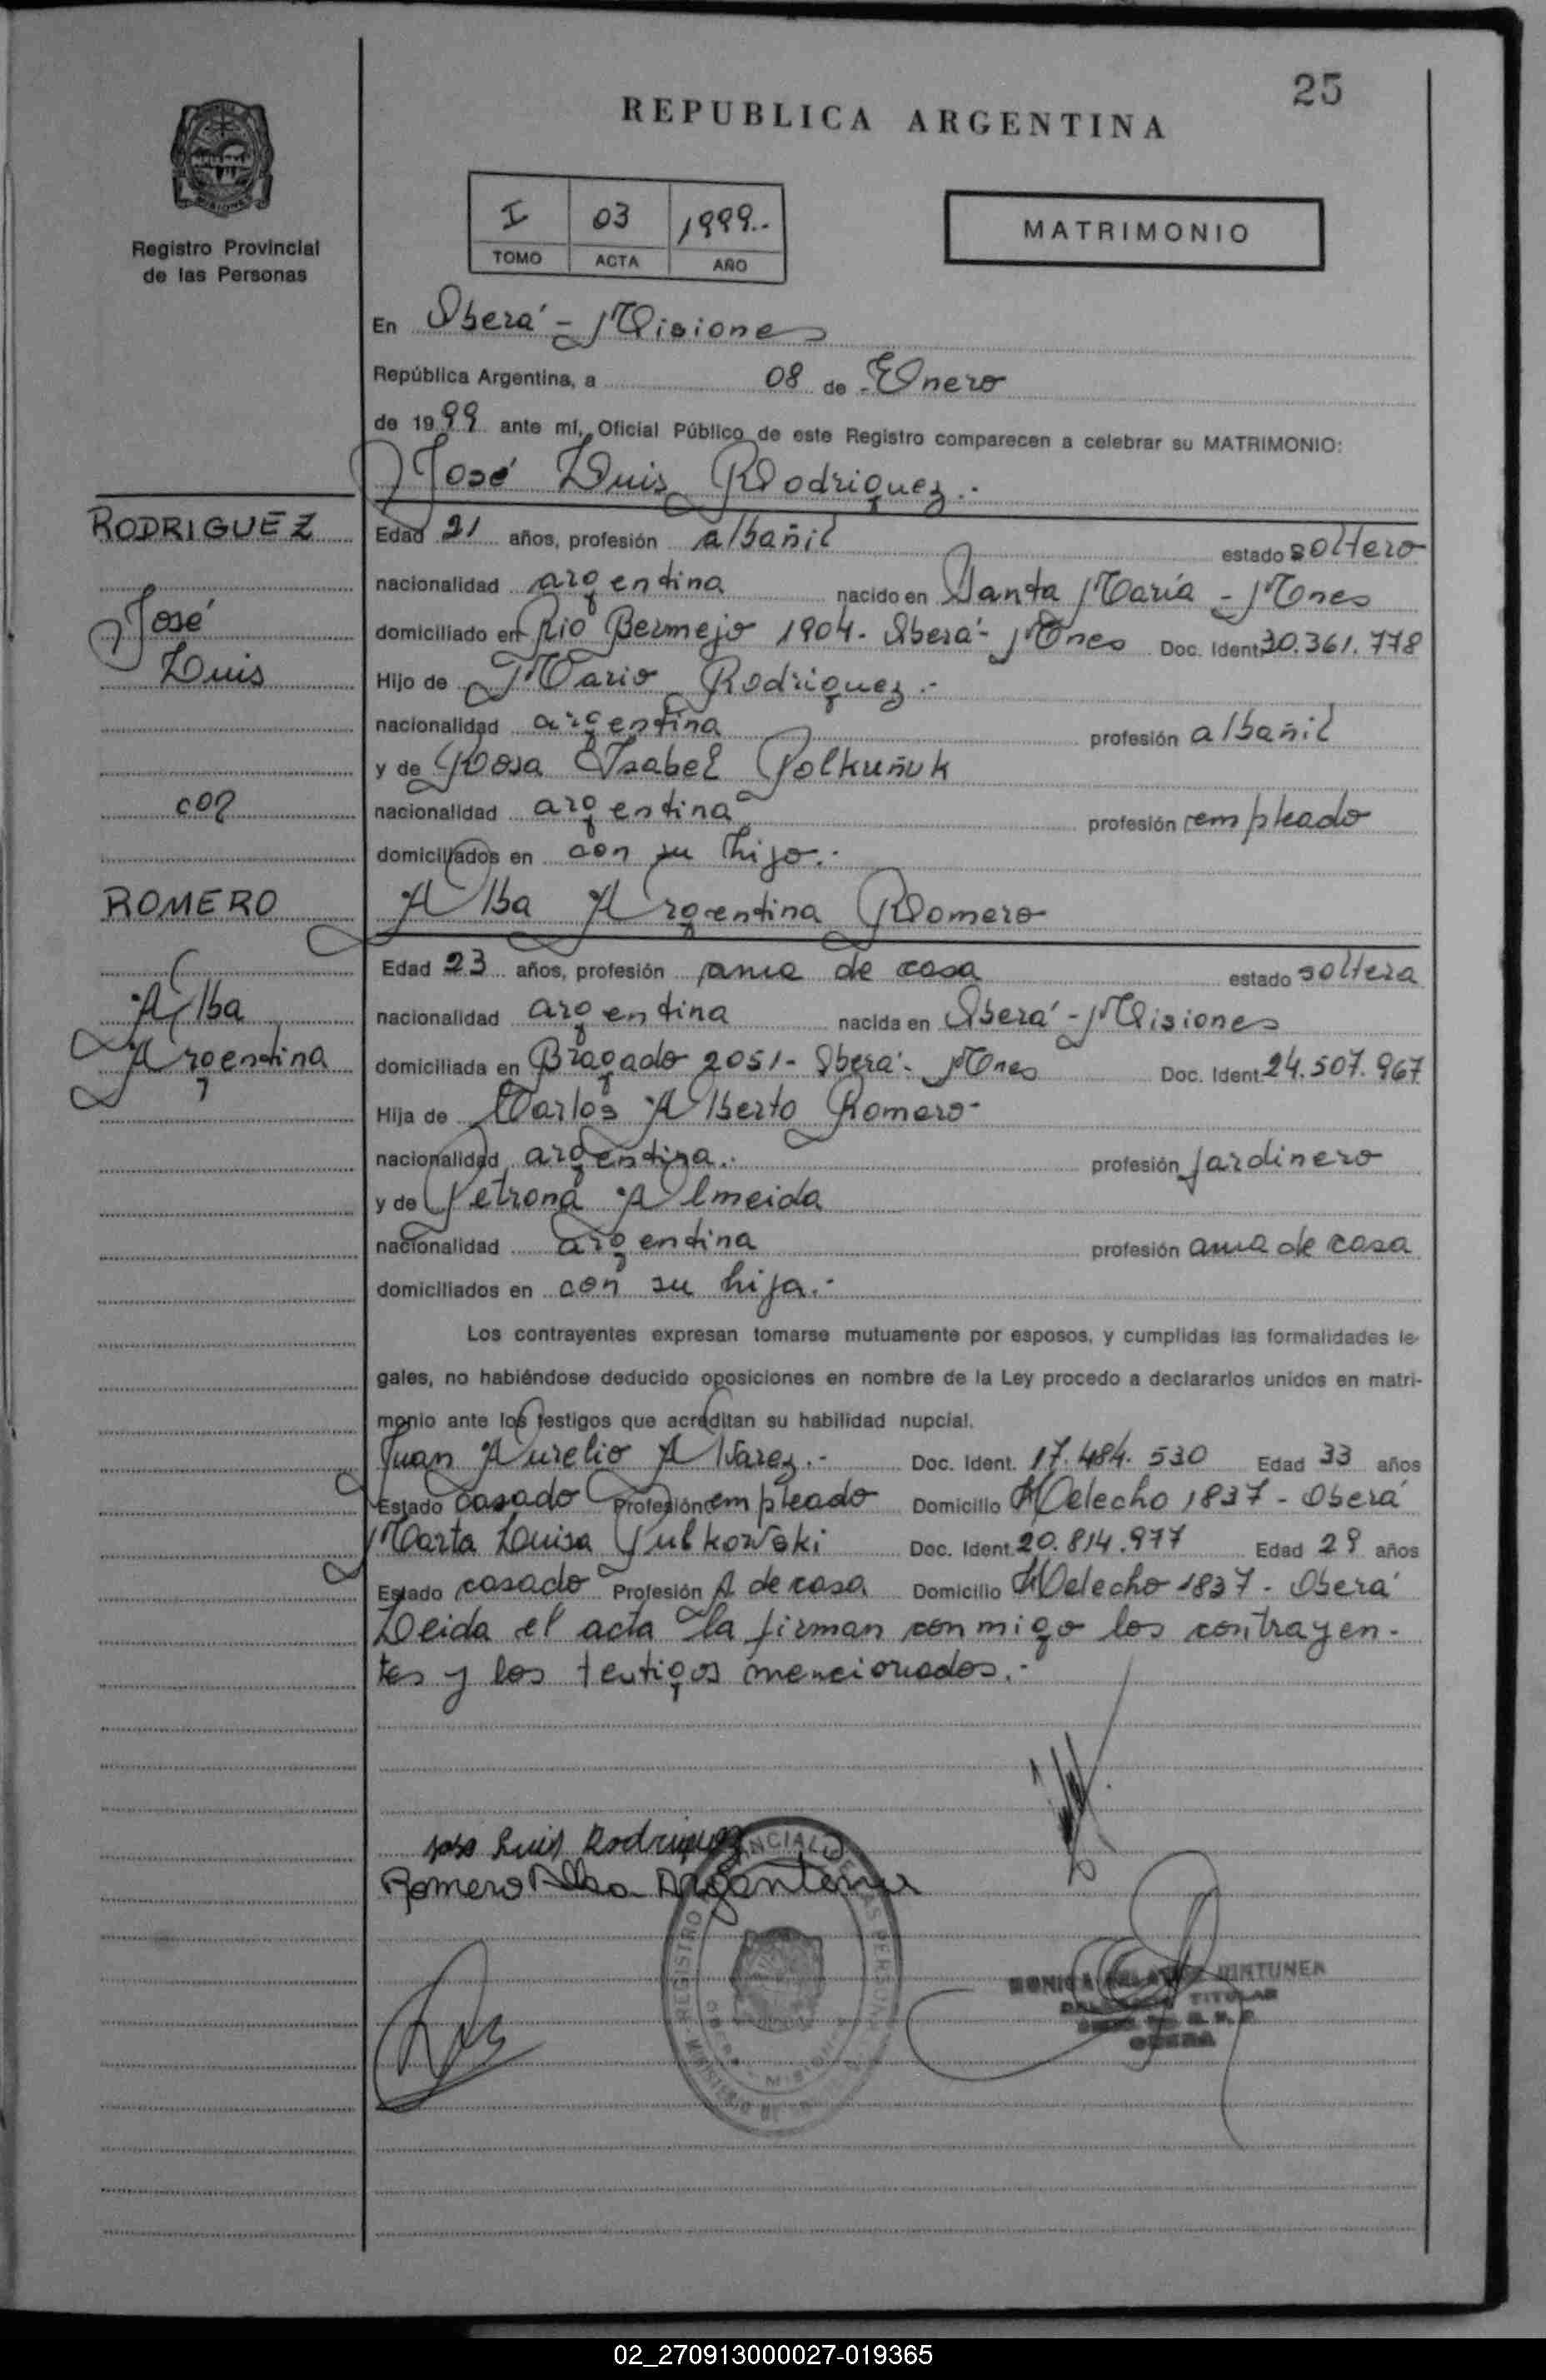 25
REPUBLICA ARGENTINA
MISIONES
Registro Provincial
de las Personas
I 03 1999..
TOMO ACTA AÑO
MATRIMONIO
En Oberá - Misiones
República Argentina, a 08 de Enero
de 1999 ante mí, Oficial Público de este Registro comparecen a celebrar su MATRIMONIO:
José Luis Rodriguez.-
RODRIGUEZ
Edad 21 años, profesión albañil estado soltero
nacionalidad argentina nacido en Santa María - Mnes
José
domiciliado en Rio Bermejo 1904. Oberá - Mnes Doc. Ident. 30.361.778
Luis
Hijo de Mario Rodriguez.-
nacionalidad argentina profesión albañil
y de Rosa Isabel Polkuñuk
con
nacionalidad argentina profesión empleado
domiciliados en con su hijo.-
ROMERO
Alba Argentina Romero
Edad 23 años, profesión ama de casa estado soltera
Alba
nacionalidad argentina nacida en Oberá - Misiones
Argentina
domiciliada en Bragado 2051 - Oberá - Mnes Doc. Ident. 24.507.967
Hija de Carlos Alberto Romero-
nacionalidad argentina.- profesión jardinero
y de Petrona Almeida
nacionalidad argentina profesión ama de casa
domiciliados en con su hija.-
Los contrayentes expresan tomarse mutuamente por esposos, y cumplidas las formalidades le-
gales, no habiéndose deducido oposiciones en nombre de la Ley procedo a declararlos unidos en matri-
monio ante los testigos que acreditan su habilidad nupcial.
Juan Aurelio Alvarez.- Doc. Ident. 17.484.530 Edad 33 años
Estado casado Profesión empleado Domicilio Helecho 1837 - Oberá
Marta Luisa Doc. Ident. 20.814.977 Edad 29 años
Estado casado Profesión A de casa Domicilio Helecho 1837 - Oberá
Leida el acta la firman conmigo los contrayen-
tes y los testigos mencionados.-
Jose Luis Rodriguez
Romero Alba Argentina
REGISTRO
TITULAR
OBERA
02_270913000027-019365